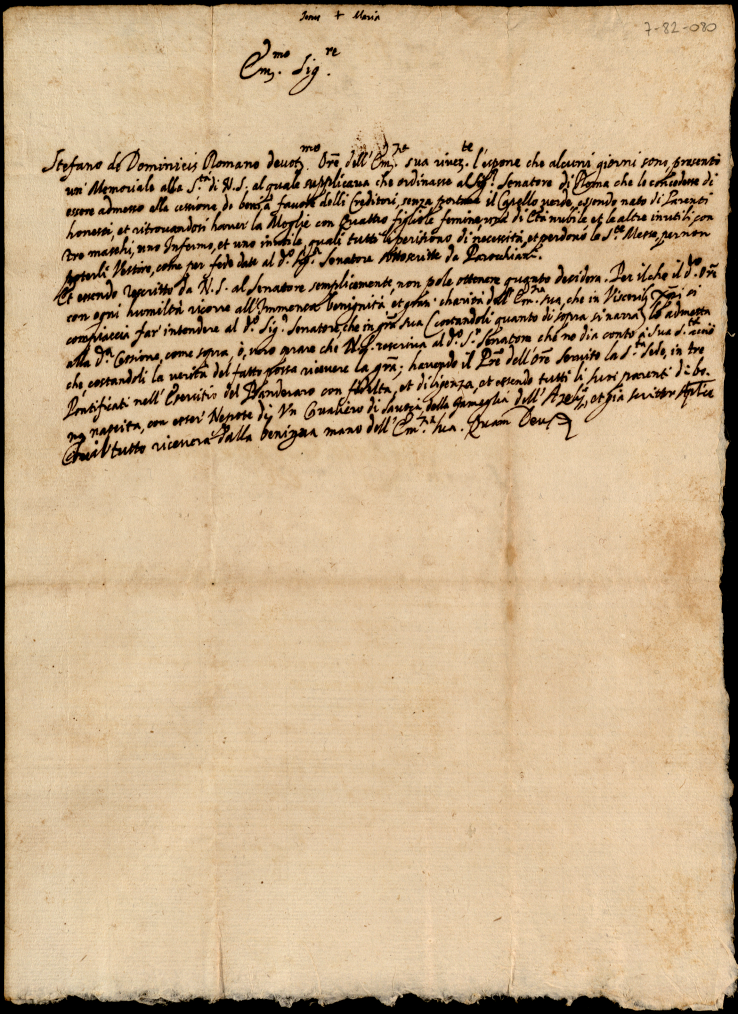 Jesus + Maria
7-82-080
Em.mo Sig.re
Stefano de Dominicis Romano devot.mo Orē dell'Em.za sua rivez.te l'espone che alcuni giorni sono, presentò
un Memoriale alla S.tà di N.S. al quale supplicava che ordinasse al Sig.r Senatore di Roma che lo concedesse di
essere admesso alla cessione di beni à favore delli Creditori, senza portare il Capello verde, essendo nato di Parenti
honesti, et ritrovandosi haver la Moglie con Quattro figliole femine, una di Età nubile et le altre inutili, con
tre maschi, uno Infermo, et uno inabile, quali tutti periscono di necessità, et perdono le S.te Messe, per non
poterli Vestire, come per fede date al d.o Sig.r Senatore sottoscritte da Parochiani.
Et essendo rescritto da N.S. al Senatore semplicemente, non pole ottenere quanto desidera. Per il che il d.o Orē
con ogni humiltà ricorre all'Immensa benignità et gran charità dell'Em.za sua, che in Visceribus si
compiaccia far intendere al d.o Sig.r Senatore, che in grā sua (costandoli quanto di sopra si narra) lo admetta
alla d.a Cessione, come sopra, ò, vero orare che N.S. rescriva al d.o S.r Senatore che ne dia conto à sua S.tà acciò
che costandoli la verità del fatto possa ricevere la grā; havendo il Prē dell'Orē servito la S.ta Sede, in tre
Pontificati nell'Esercitio del Banderaro con fedeltà, et diligenza, et essendo tutti li suoi parenti di bo-
na nascita, con esser Nepote di Un Cavaliero di della Fameglia dell' et già scrittor
Che il tutto riceverà dalla benigna mano dell'Em.za sua. Quam Deus